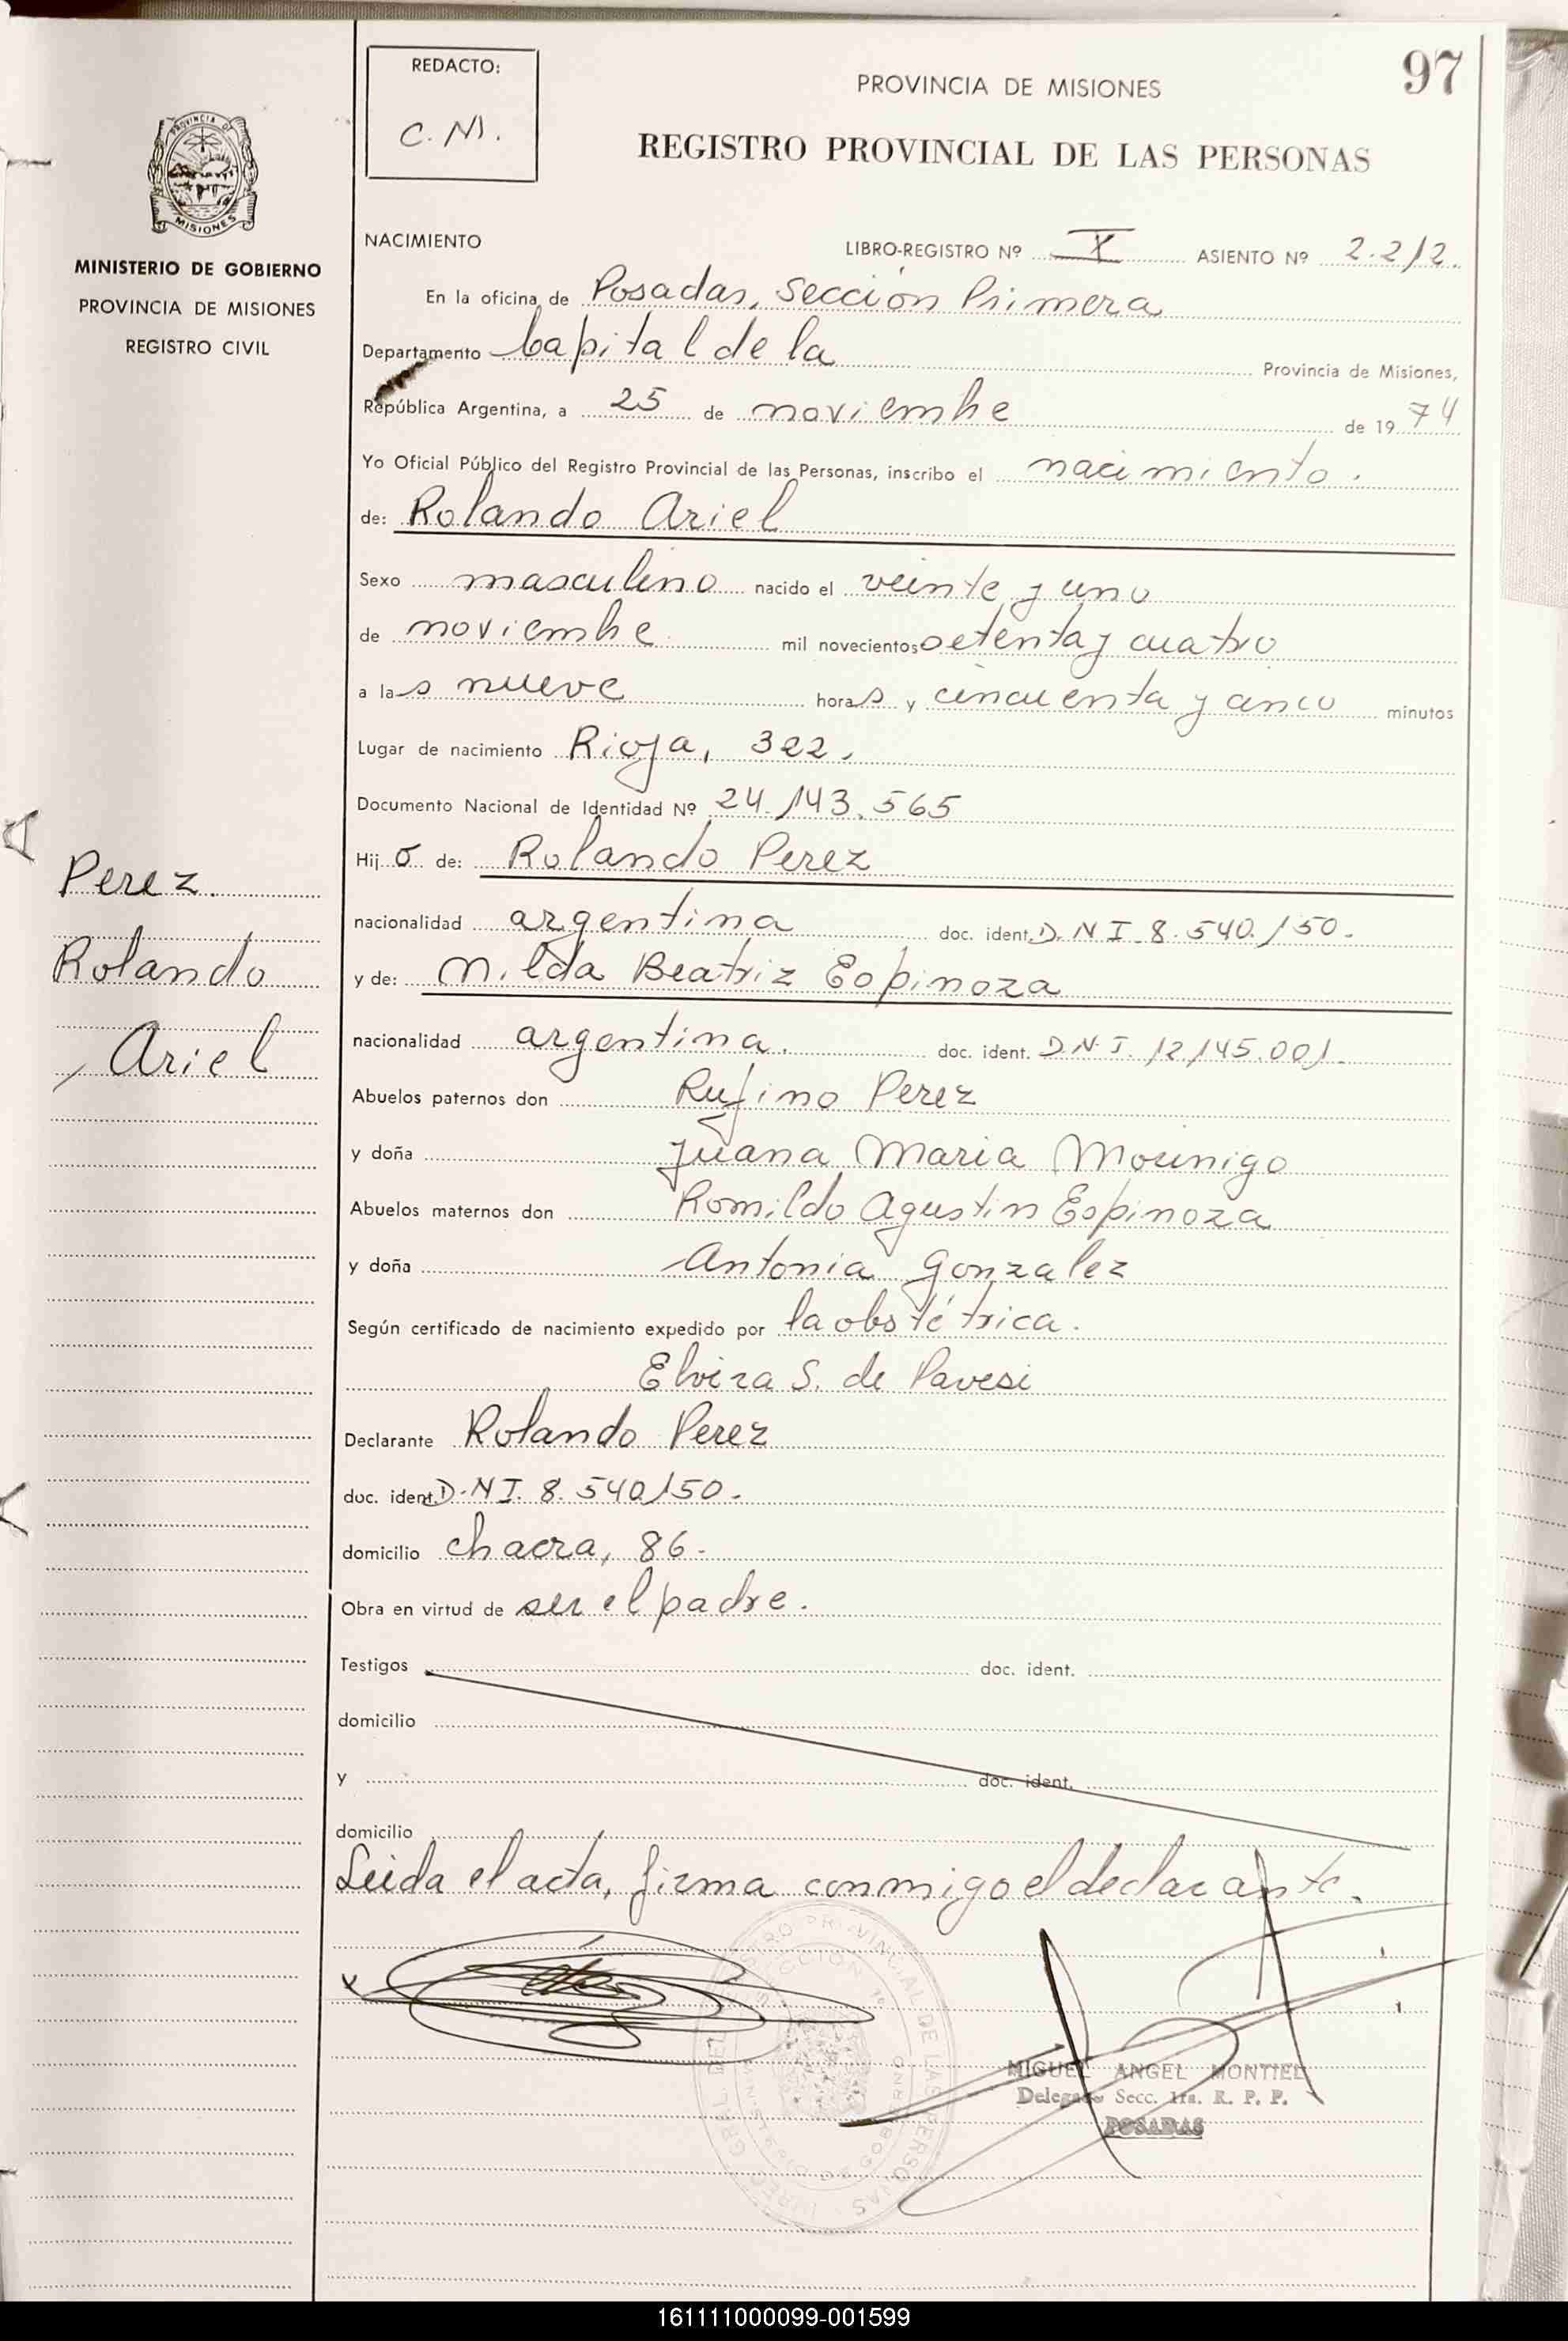 97
REDACTO:
C. M.
PROVINCIA DE MISIONES
REGISTRO PROVINCIAL DE LAS PERSONAS
PROVINCIA DE
MISIONES
MINISTERIO DE GOBIERNO
PROVINCIA DE MISIONES
REGISTRO CIVIL
NACIMIENTO
LIBRO-REGISTRO Nº X ASIENTO Nº 2.212.
En la oficina de Posadas, Sección Primera
Departamento Capital de la Provincia de Misiones,
República Argentina, a 25 de noviembre de 1974
Yo Oficial Público del Registro Provincial de las Personas, inscribo el nacimiento.
de: Rolando Ariel
Sexo masculino nacido el veinte y uno
de noviembre mil novecientos setenta y cuatro
a las nueve horas y cincuenta y cinco minutos
Lugar de nacimiento Rioja, 322.
Documento Nacional de Identidad Nº 24.143.565
Hijo de: Rolando Perez
nacionalidad argentina doc. ident. D.N I. 8.540.150.
y de: Milda Beatriz Espinoza
nacionalidad argentina. doc. ident. D.N.I. 12.145.001.
Abuelos paternos don Rufino Perez
y doña Juana Maria Mounigo
Abuelos maternos don Romildo Agustin Espinoza
y doña Antonia Gonzalez
Según certificado de nacimiento expedido por la obstétrica.
Elvira S. de Pavesi
Declarante Rolando Perez
doc. ident. D.N I. 8.540.150.
domicilio chacra, 86.
Obra en virtud de ser el padre.
Testigos doc. ident.
domicilio
y doc. ident.
domicilio
Leida el acta, firma conmigo el declarante.
Perez.
Rolando
Ariel
MIGUEL ANGEL MONTIEL
Delegado Secc. 1ra. R. P. P.
POSADAS
161111000099-001599